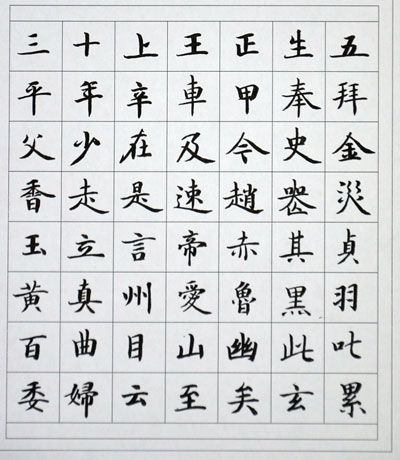 三十上王正生五
平年辛車甲奉拜
父少在及令史金
走是速趙器災
玉立言帝赤其貞
黃真州愛魯黑羽
百曲目山幽此叱
委婦云至矣玄累